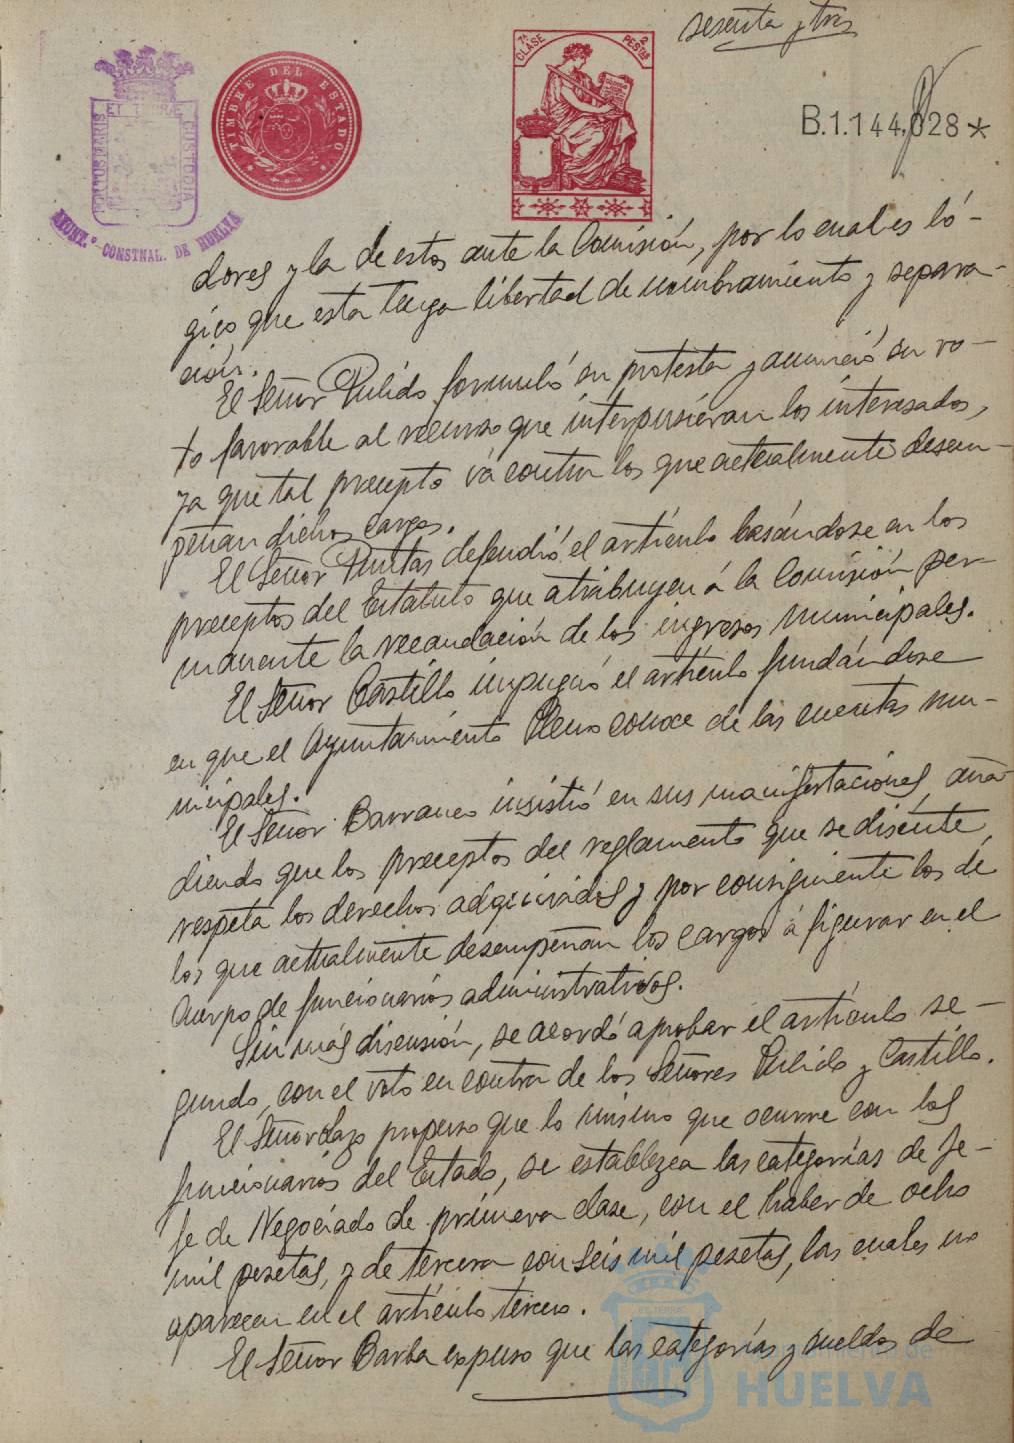 sesenta y tres
7ª CLASE 2 PESTAS
TIMBRE DEL ESTADO
PORTUS MARIS ET TERRAE CUSTODIA
AYUNT.º CONSTNAL. DE HUELVA
B.1.144,028*
dores y la de estos ante la Comisión, por lo cual es ló-
gico que esta tenga libertad de nombramiento y separa-
ción.
El Señor Pulido formuló su protesta y anunció su vo-
to favorable al recurso que interpusieran los interesados,
ya que tal precepto vá contra los que actualmente desem-
peñan dichos cargos.
El Señor defendió el artículo basándose en los
preceptos del Estatuto que atribuyen á la Comisión per-
manente la recaudación de los ingresos municipales.
El Señor Castillo impugnó el artículo fundándose
en que el Ayuntamiento Pleno conoce de las cuentas mu-
nicipales.
El Señor Barranco insistió en sus manifestaciones, aña-
diendo que los preceptos del reglamento que se discute,
respeta los derechos adquiridos y por consiguiente los de
los que actualmente desempeñan los cargos á figurar en el
Cuerpo de funcionarios administrativos.
Sin más discusión, se acordó aprobar el artículo se-
gundo, con el voto en contra de los Señores Pulido y Castillo.
El Señor Lazo propuso que lo mismo que ocurre con los
funcionarios del Estado, se establezca las categorías de Je-
fe de Negociado de primera clase, con el haber de ocho
mil pesetas, y de tercera con seis mil pesetas, las cuales no
aparecen en el artículo tercero.
El Señor Barba expuso que las categorías y sueldos de
Ayuntamiento de
HUELVA